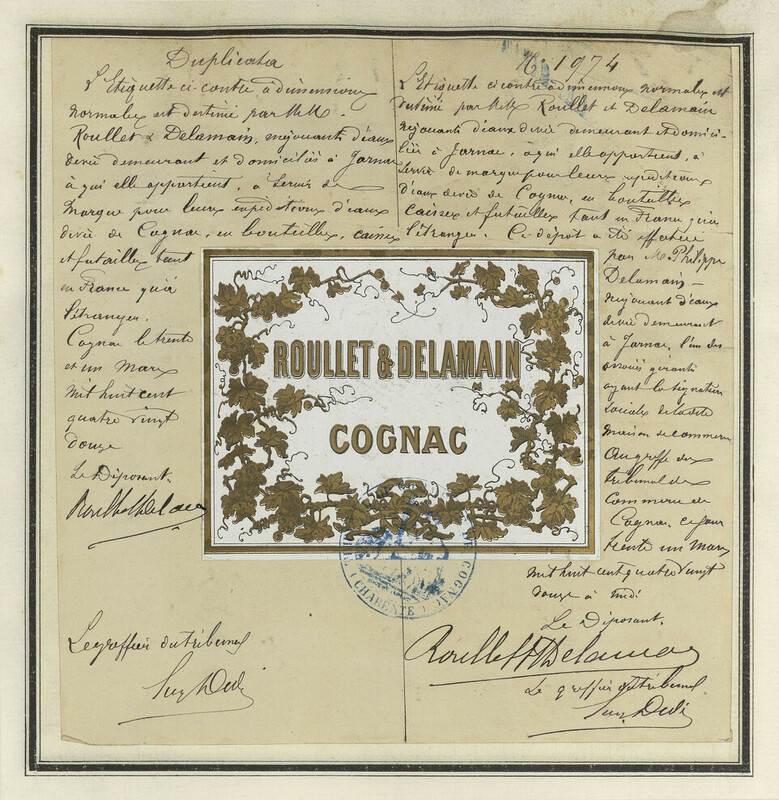 Duplicata
L'Etiquette ci contre à dimensions
normales est destinée par MM.
Roullet & Delamain, négociants d'eaux
de vie demeurant et domiciliés à Jarnac
à qui elle appartient, à servir de
marque pour leurs expéditions d'eaux
de vie de Cognac, en bouteilles, caisses
et futailles tant
en France qu'à
l'étranger.
Cognac le trente
et un Mars
mil huit cent
quatre vingt
douze
Le Déposant.
Roullet & Delamain
Le greffier du tribunal
N. 1974
L'Etiquette ci contre à dimensions normales est
destinée par MM Roullet et Delamain
négociants d'eaux de vie demeurant et domici-
liés à Jarnac, à qui elle appartient, à
servir de marque pour leurs expéditions
d'eaux de vie de Cognac, en bouteilles
caisses et futailles tant en France qu'à
l'étranger. Ce dépôt a été effectué
par M. Philippe
Delamain
négociant d'eaux
de vie demeurant
à Jarnac, l'un des
associés gérants
ayant la signature
sociale de la dite
maison de commerce
au greffe du
tribunal de
Commerce de
Cognac, ce jour
trente un Mars
mil huit cent quatre vingt
douze à midi
Le Déposant.
Roullet & Delamain
Le greffier du tribunal
ROULLET & DELAMAIN
COGNAC
COGNAC (CHARENTE)